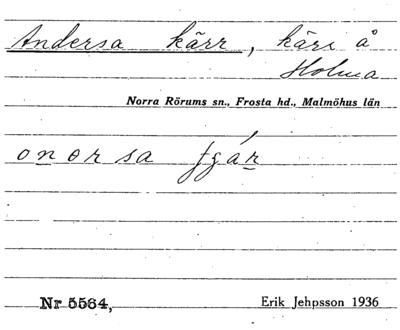 Andersa kärr, kärr å
Holma
Norra Rörums sn., Frosta hd., Malmöhus län
Nr 5564,
Erik Jehpsson 1936